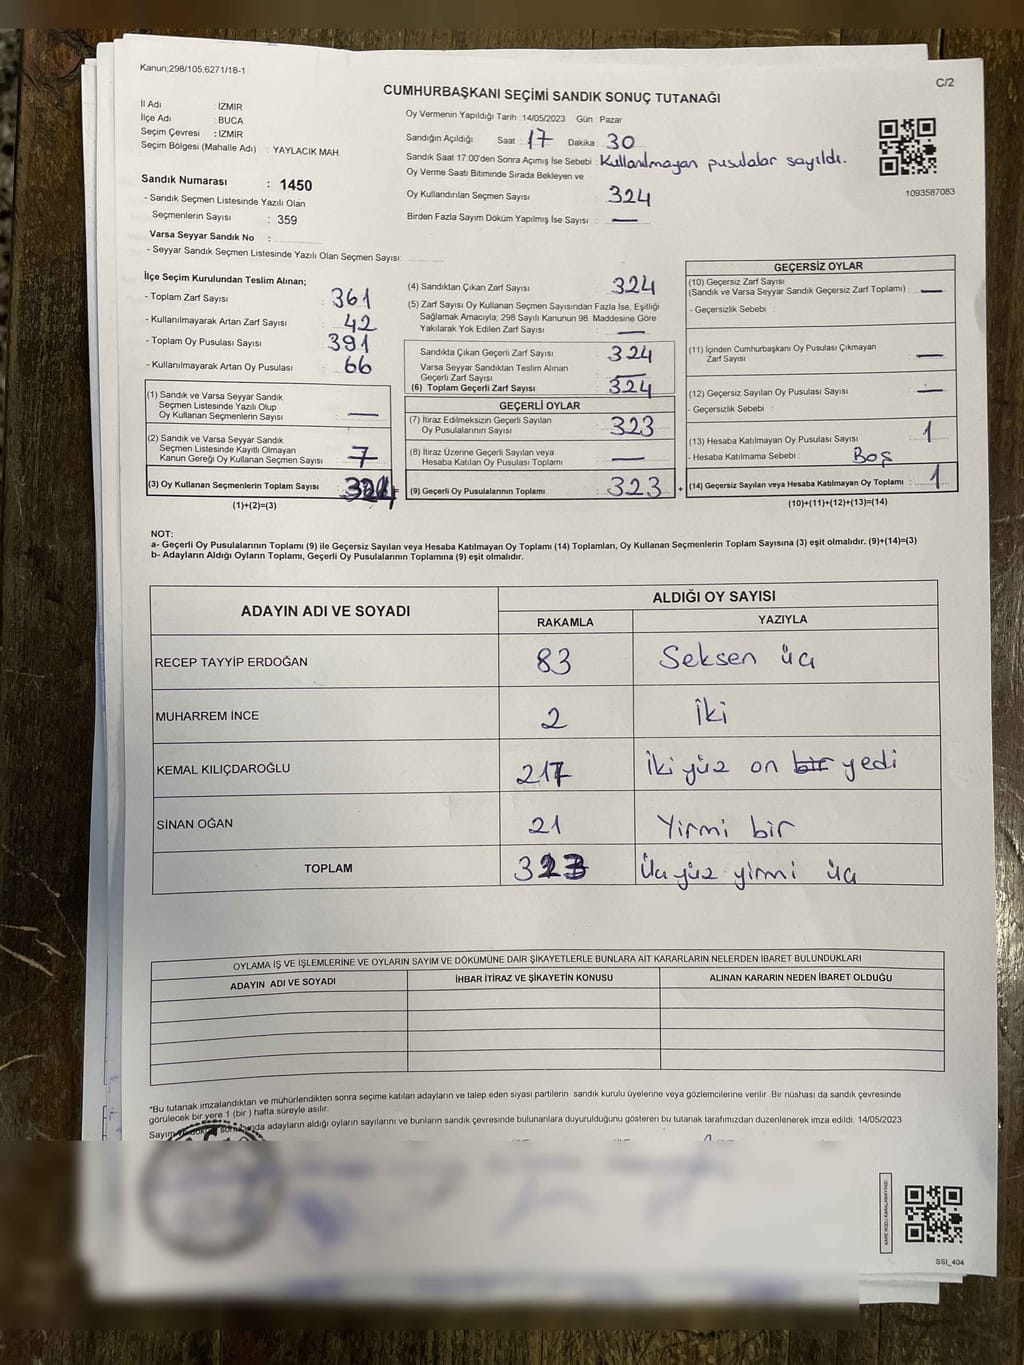 Kanun;298/105;6271/18-1
C/2
CUMHURBAŞKANI SEÇİMİ SANDIK SONUÇ TUTANAĞI
İl Adı : İZMİR
İlçe Adı : BUCA
Seçim Çevresi : İZMİR
Seçim Bölgesi (Mahalle Adı) : YAYLACIK MAH.
Sandık Numarası : 1450
- Sandık Seçmen Listesinde Yazılı Olan
Seçmenlerin Sayısı : 359
Varsa Seyyar Sandık No :
- Seyyar Sandık Seçmen Listesinde Yazılı Olan Seçmen Sayısı:
Oy Vermenin Yapıldığı Tarih :14/05/2023 Gün : Pazar
Sandığın Açıldığı Saat : 17 Dakika : 30
Sandık Saat 17:00'den Sonra Açımış İse Sebebi : Kullanılmayan pusulalar sayıldı.
Oy Verme Saati Bitiminde Sırada Bekleyen ve
Oy Kullandırılan Seçmen Sayısı : 324
Birden Fazla Sayım Döküm Yapılmış İse Sayısı : —
1093587083
İlçe Seçim Kurulundan Teslim Alınan;
- Toplam Zarf Sayısı : 361
- Kullanılmayarak Artan Zarf Sayısı : 42
- Toplam Oy Pusulası Sayısı : 391
- Kullanılmayarak Artan Oy Pusulası : 66
(1) Sandık ve Varsa Seyyar Sandık
Seçmen Listesinde Yazılı Olup
Oy Kullanan Seçmenlerin Sayısı : —
(2) Sandık ve Varsa Seyyar Sandık
Seçmen Listesinde Kayıtlı Olmayan
Kanun Gereği Oy Kullanan Seçmen Sayısı : 7
(3) Oy Kullanan Seçmenlerin Toplam Sayısı : 324
(1)+(2)=(3)
(4) Sandıktan Çıkan Zarf Sayısı : 324
(5) Zarf Sayısı Oy Kullanan Seçmen Sayısından Fazla İse, Eşitliği
Sağlamak Amacıyla; 298 Sayılı Kanunun 98. Maddesine Göre
Yakılarak Yok Edilen Zarf Sayısı : —
Sandıkta Çıkan Geçerli Zarf Sayısı : 324
Varsa Seyyar Sandıktan Teslim Alınan
Geçerli Zarf Sayısı : —
(6) Toplam Geçerli Zarf Sayısı : 324
GEÇERLİ OYLAR
(7) İtiraz Edilmeksizin Geçerli Sayılan
Oy Pusulalarının Sayısı : 323
(8) İtiraz Üzerine Geçerli Sayılan veya
Hesaba Katılan Oy Pusulası Toplamı : —
(9) Geçerli Oy Pusulalarının Toplamı : 323
GEÇERSİZ OYLAR
(10) Geçersiz Zarf Sayısı
(Sandık ve Varsa Seyyar Sandık Geçersiz Zarf Toplamı) : —
- Geçersizlik Sebebi :
(11) İçinden Cumhurbaşkanı Oy Pusulası Çıkmayan
Zarf Sayısı : —
(12) Geçersiz Sayılan Oy Pusulası Sayısı : —
- Geçersizlik Sebebi :
(13) Hesaba Katılmayan Oy Pusulası Sayısı : 1
- Hesaba Katılmama Sebebi : Boş
+ (14) Geçersiz Sayılan veya Hesaba Katılmayan Oy Toplamı : 1
(10)+(11)+(12)+(13)=(14)
NOT:
a- Geçerli Oy Pusulalarının Toplamı (9) ile Geçersiz Sayılan veya Hesaba Katılmayan Oy Toplamı (14) Toplamları, Oy Kullanan Seçmenlerin Toplam Sayısına (3) eşit olmalıdır. (9)+(14)=(3)
b- Adayların Aldığı Oyların Toplamı, Geçerli Oy Pusulalarının Toplamına (9) eşit olmalıdır.
ADAYIN ADI VE SOYADI
ALDIĞI OY SAYISI
RAKAMLA YAZIYLA
RECEP TAYYİP ERDOĞAN 83 Seksen üç
MUHARREM İNCE 2 İki
KEMAL KILIÇDAROĞLU 217 İki yüz on bir yedi
SİNAN OĞAN 21 Yirmi bir
TOPLAM 323 Üçyüz yirmi üç
OYLAMA İŞ VE İŞLEMLERİNE VE OYLARIN SAYIM VE DÖKÜMÜNE DAİR ŞİKAYETLERLE BUNLARA AİT KARARLARIN NELERDEN İBARET BULUNDUKLARI
ADAYIN ADI VE SOYADI İHBAR İTİRAZ VE ŞİKAYETİN KONUSU ALINAN KARARIN NEDEN İBARET OLDUĞU
*Bu tutanak imzalandıktan ve mühürlendikten sonra seçime katılan adayların ve talep eden siyasi partilerin sandık kurulu üyelerine veya gözlemcilerine verilir. Bir nüshası da sandık çevresinde
görülecek bir yere 1 (bir) hafta süreyle asılır.
Sayım adayların aldığı oyların sayılarını ve bunların sandık çevresinde bulunanlara duyurulduğunu gösteren bu tutanak tarafımızdan düzenlenerek imza edildi. 14/05/2023
SSI_404